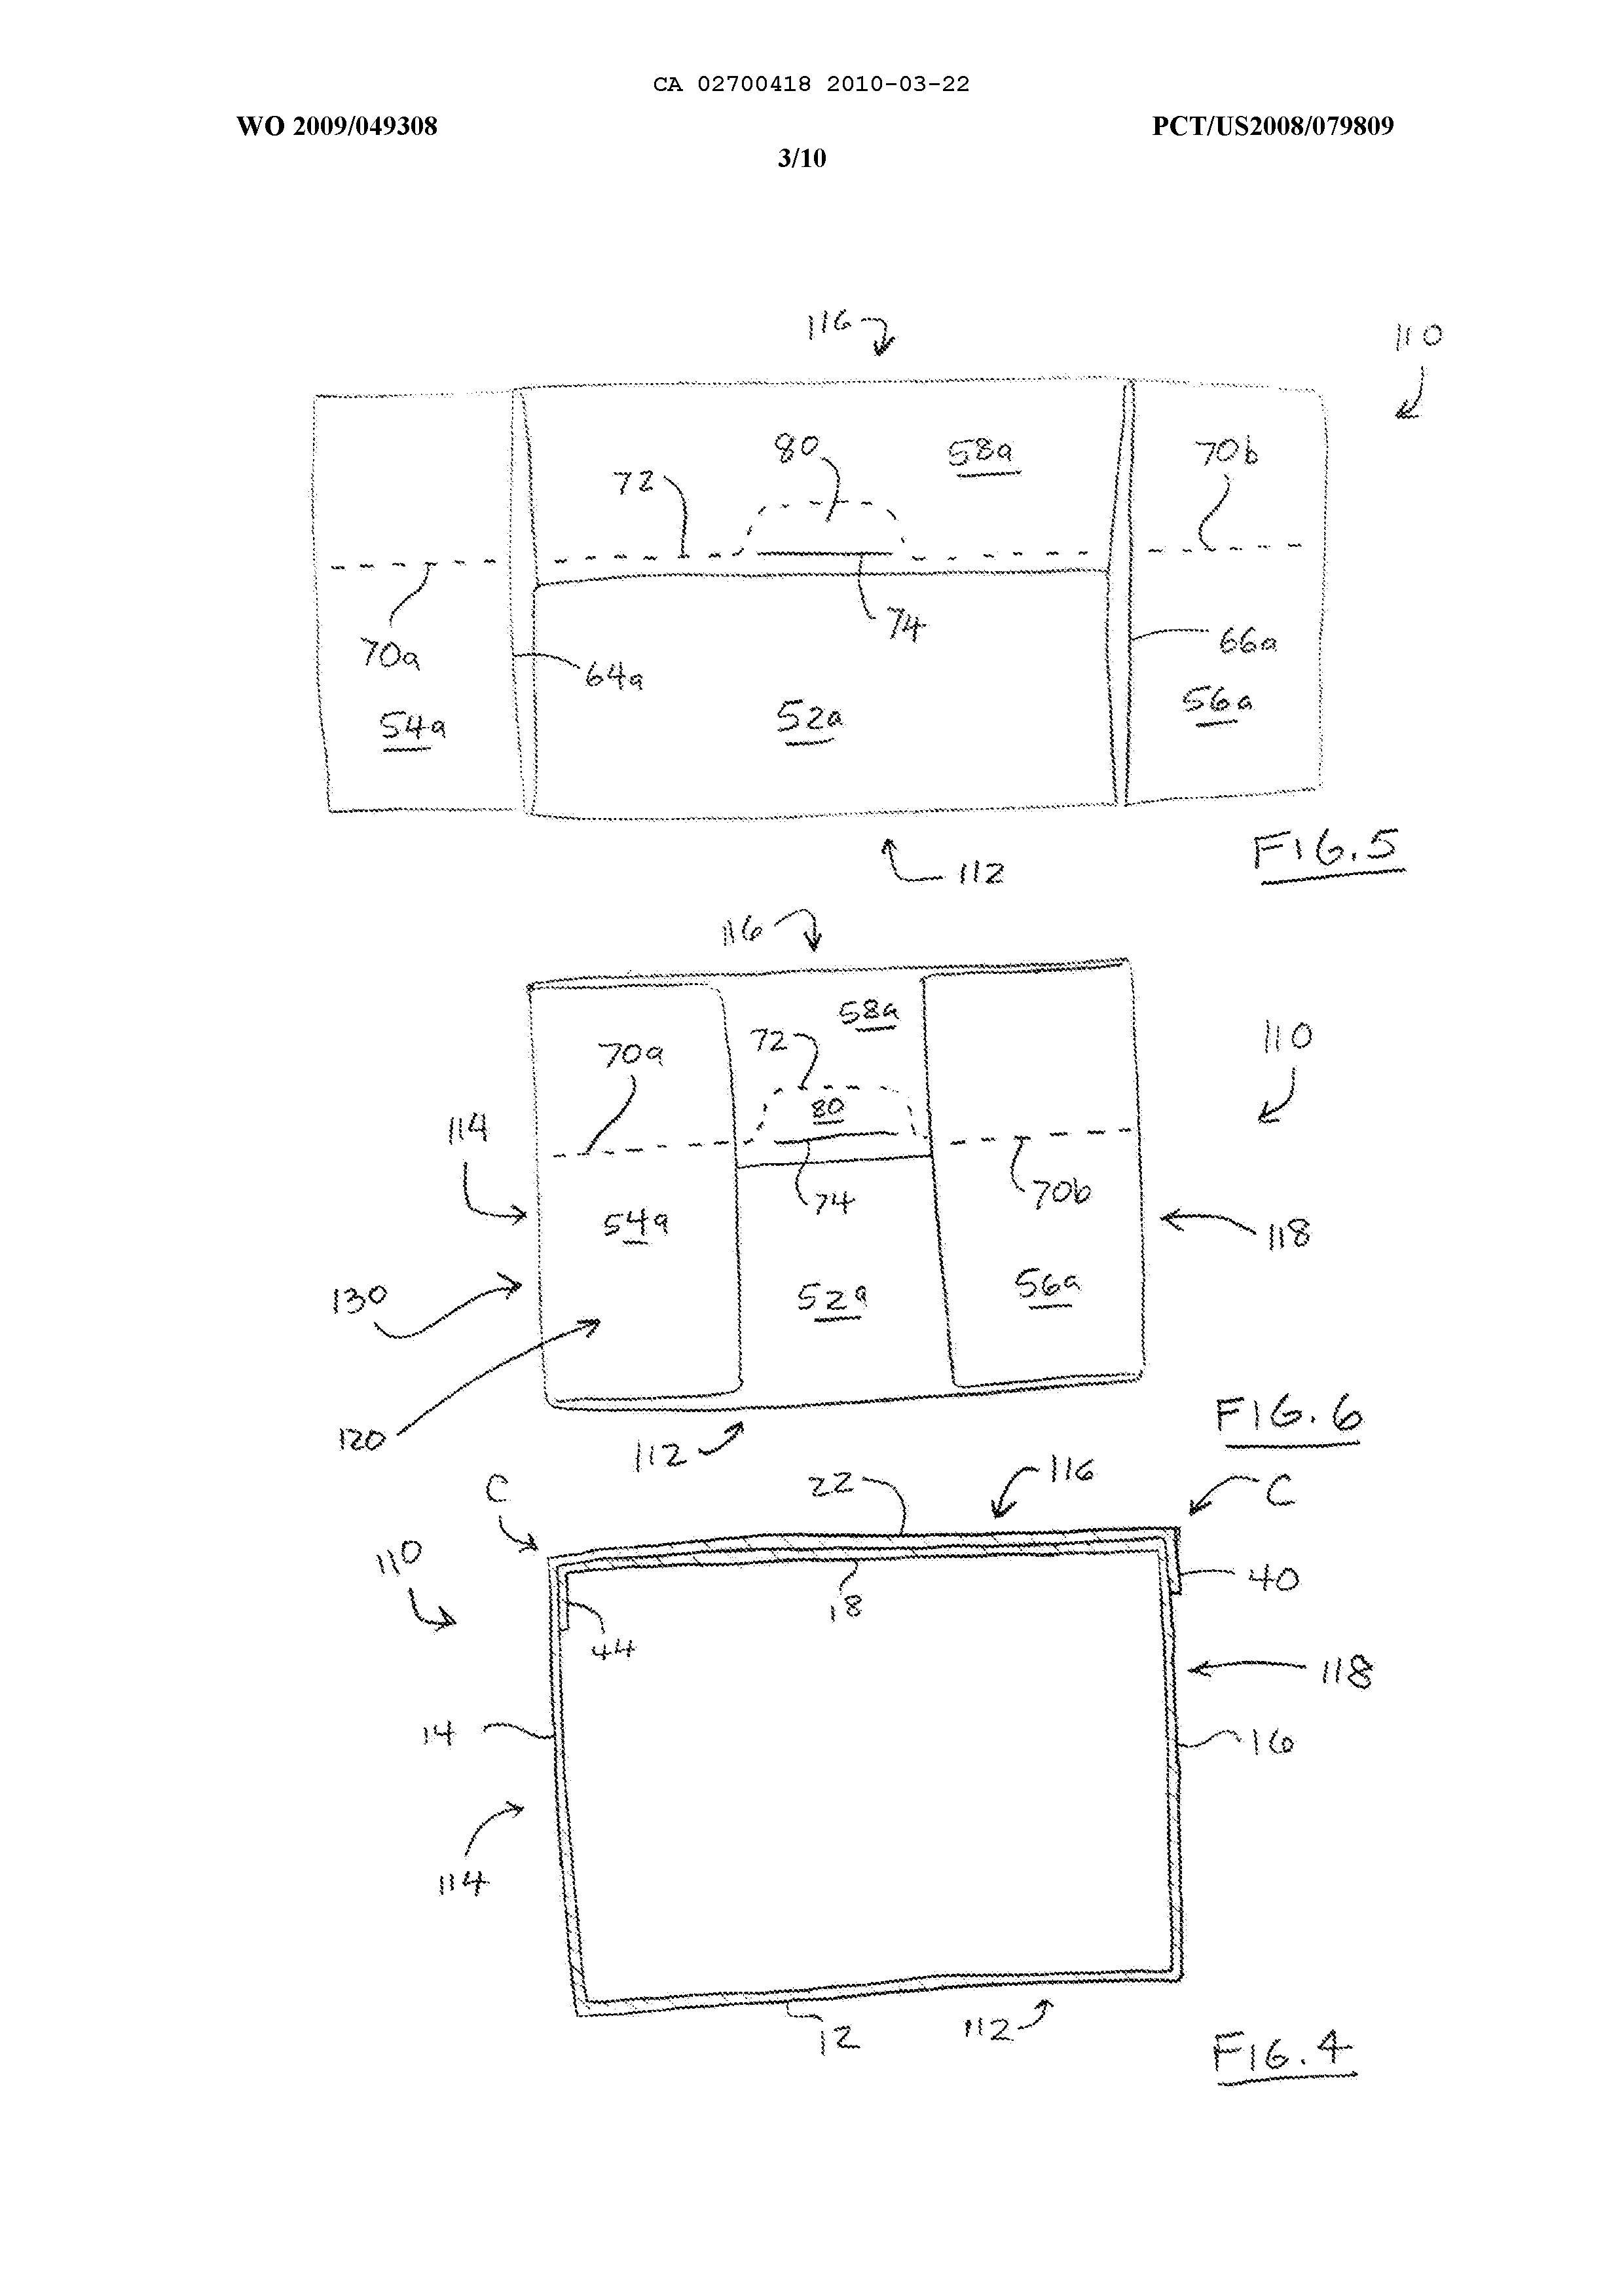 CA 02700418 2010-03-22
WO 2009/049308
PCT/US2008/079809
3/10
116
110
80
58a
70b
72
74
70a
64a
66a
54a
52a
56a
112
FIG.5
116
58a
72
70a
110
80
114
74
70b
54a
118
130
52a
56a
120
112
FIG.6
C
22
116
C
110
40
18
44
118
14
16
114
12
112
FIG.4